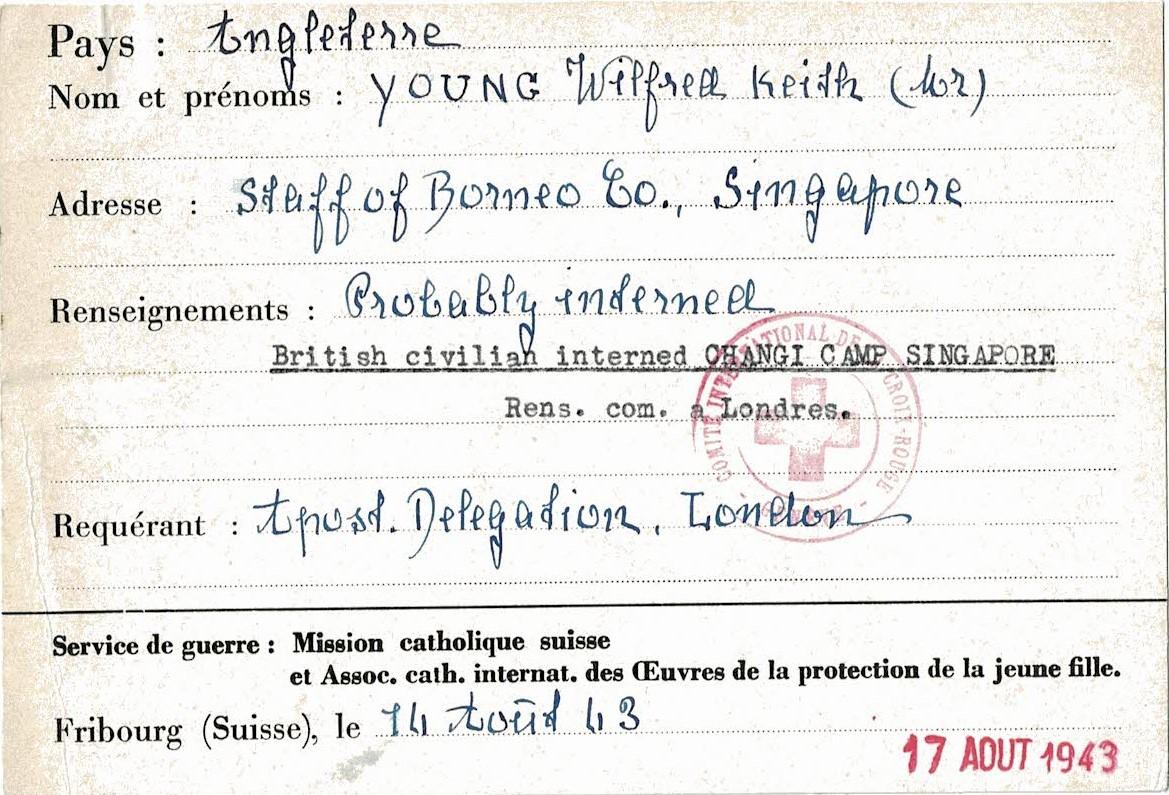 Pays : Angleterre
Nom et prénoms : YOUNG Wilfred Keith (Mr)
Adresse : Staff of Borneo Co., Singapore
Renseignements : Probably interned
British civilian interned CHANGI CAMP SINGAPORE
Rens. com. a Londres.
COMITÉ INTERNATIONAL DE LA CROIX-ROUGE - GENÈVE -
Requérant : Apost. Delegation, London
Service de guerre : Mission catholique suisse
et Assoc. cath. internat. des Œuvres de la protection de la jeune fille.
Fribourg (Suisse), le 14 Août 43
17 AOUT 1943